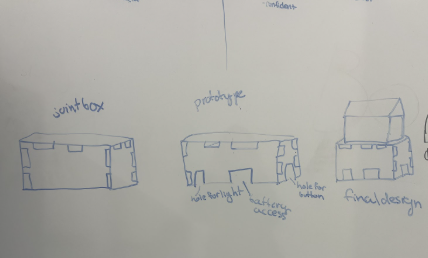 confident
joint box
prototype
hole for light
battery
access
hole for
button
final design